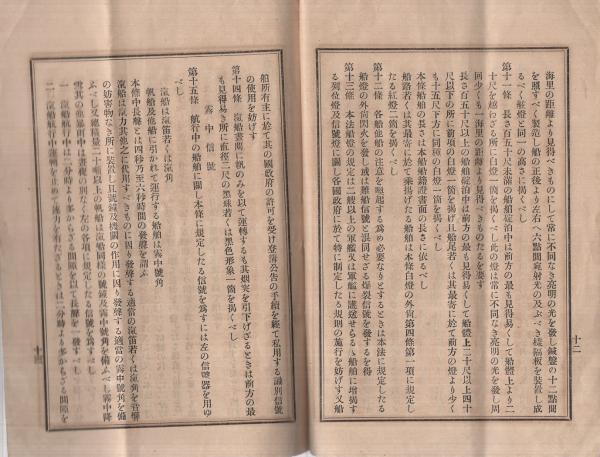 海里の距離より見得べきものにして常に不同なき亮明の光を發し鍼盤の十二點間
を照すべく製造し船の正後より左右へ六點間宛射光の及ぶべき樣隔板を裝置し成
るべく舷燈と同一の高さに揭ぐべし
第十一條 長さ百五十尺未滿の船舶碇泊中は前方の最も見得易くして船體上より二
十尺を越ゑざる所に白燈一箇を揭ぐべし此の燈は常に不同なき亮明の光を發し周
回少くも一海里の距離より見得べきものたるを要す
長さ百五十尺以上の船舶碇泊中は前方の最も見得易くして船體上二十尺以上四十
尺以下の所に前項の白燈一箇を揭げ且船尾若くは其最寄に於て前方の燈より少く
も十五尺下方に同種の白燈一箇を揭ぐべし
本條船舶の長さは本船舶籍證書面の長さに依るべし
船路若くは其最寄に於て乘揚げたる船舶は本條白燈の外尙第四條第一項に規定し
たる紅燈二箇を揭ぐべし
第十二條 各船他船の注意を惹起する爲め必要なりとするときは本法に規定したる
船燈の外尙閃火を發し或は難船信號と混同せざる爆裂信號を發するを得
第十三條 本法船燈の規定は二艘以上の軍艦又は軍艦に護送せらるゝ船舶に增揭す
る列位燈及信號燈に關し各國政府に於て特に制定したる規則の施行を妨げず又船
十二
舶所有主に於て其の國政府の許可を受け登簿公告の手續を經て私用する識別信號
の使用を妨げず
第十四條 滊船晝間に帆のみを以て運轉するも其烟突を引下げざるときは前方の最
も見得易き所に直徑二尺の黑球若くは黑色形象一箇を揭ぐべし
霧中信號
第十五條 航行中の船舶に關し本條に規定したる信號を爲すには左の信號器を用ゆ
べし
滊船は滊笛若くは滊角
帆船及他船に引かれて運行する船舶は霧中號角
本條中長聲とは四秒乃至六秒時間の發聲を謂ふ
滊船は滊力其他之に代用すべきものに因り發聲する適當の滊笛若くは滊角を音響
の妨害物なき所に裝置し且號鐘及機關の作用に因り發聲する適當の霧中號角を備
ふべし又總積量二十噸以上の帆船は滊船同樣の號鐘及霧中號角を備ふべし霧中降
雪其の他暴雨中は晝夜の別なく左の各項に規定したる信號を爲すべし
一 滊船航行中は二分時より多からざる間隙を以て長聲を一發すべし
二 滊船航行中運轉を止めて速力を有たざるときは二分時より多からざる間隙を
十三